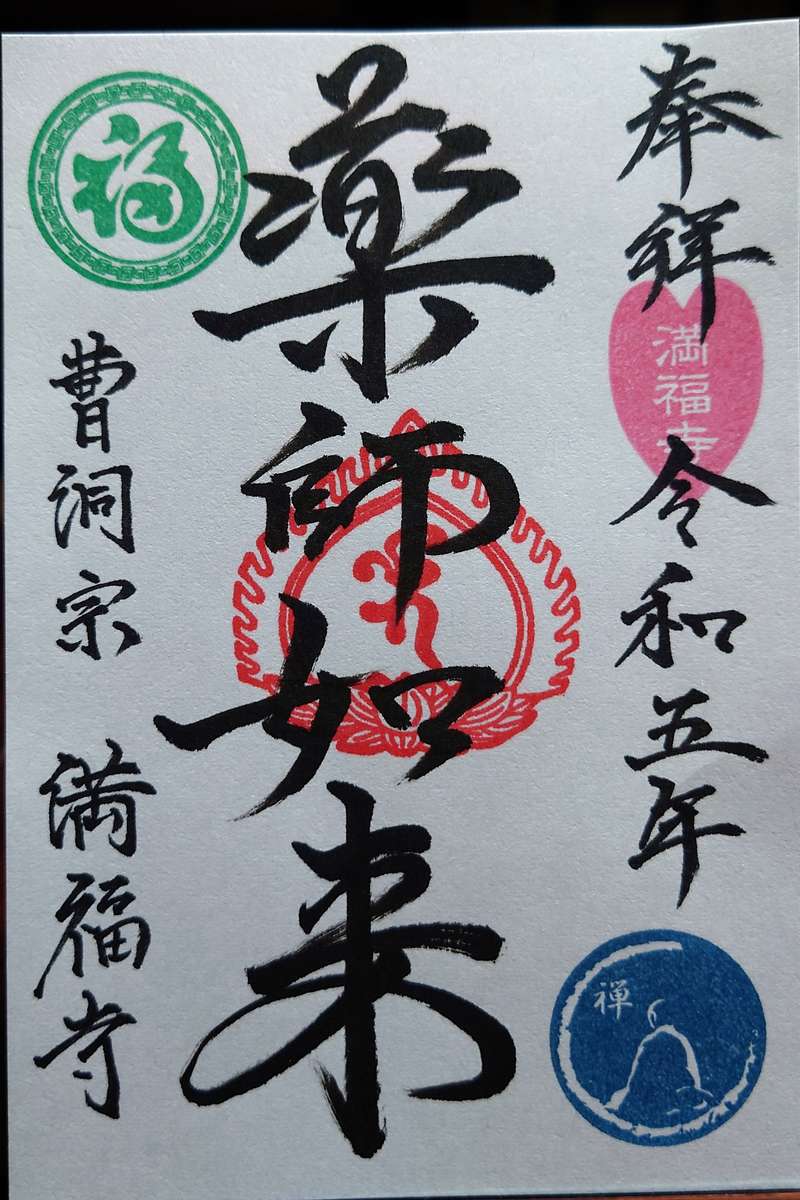 奉拝
令和五年
満福寺
禅
薬師如来
福
曹洞宗 満福寺